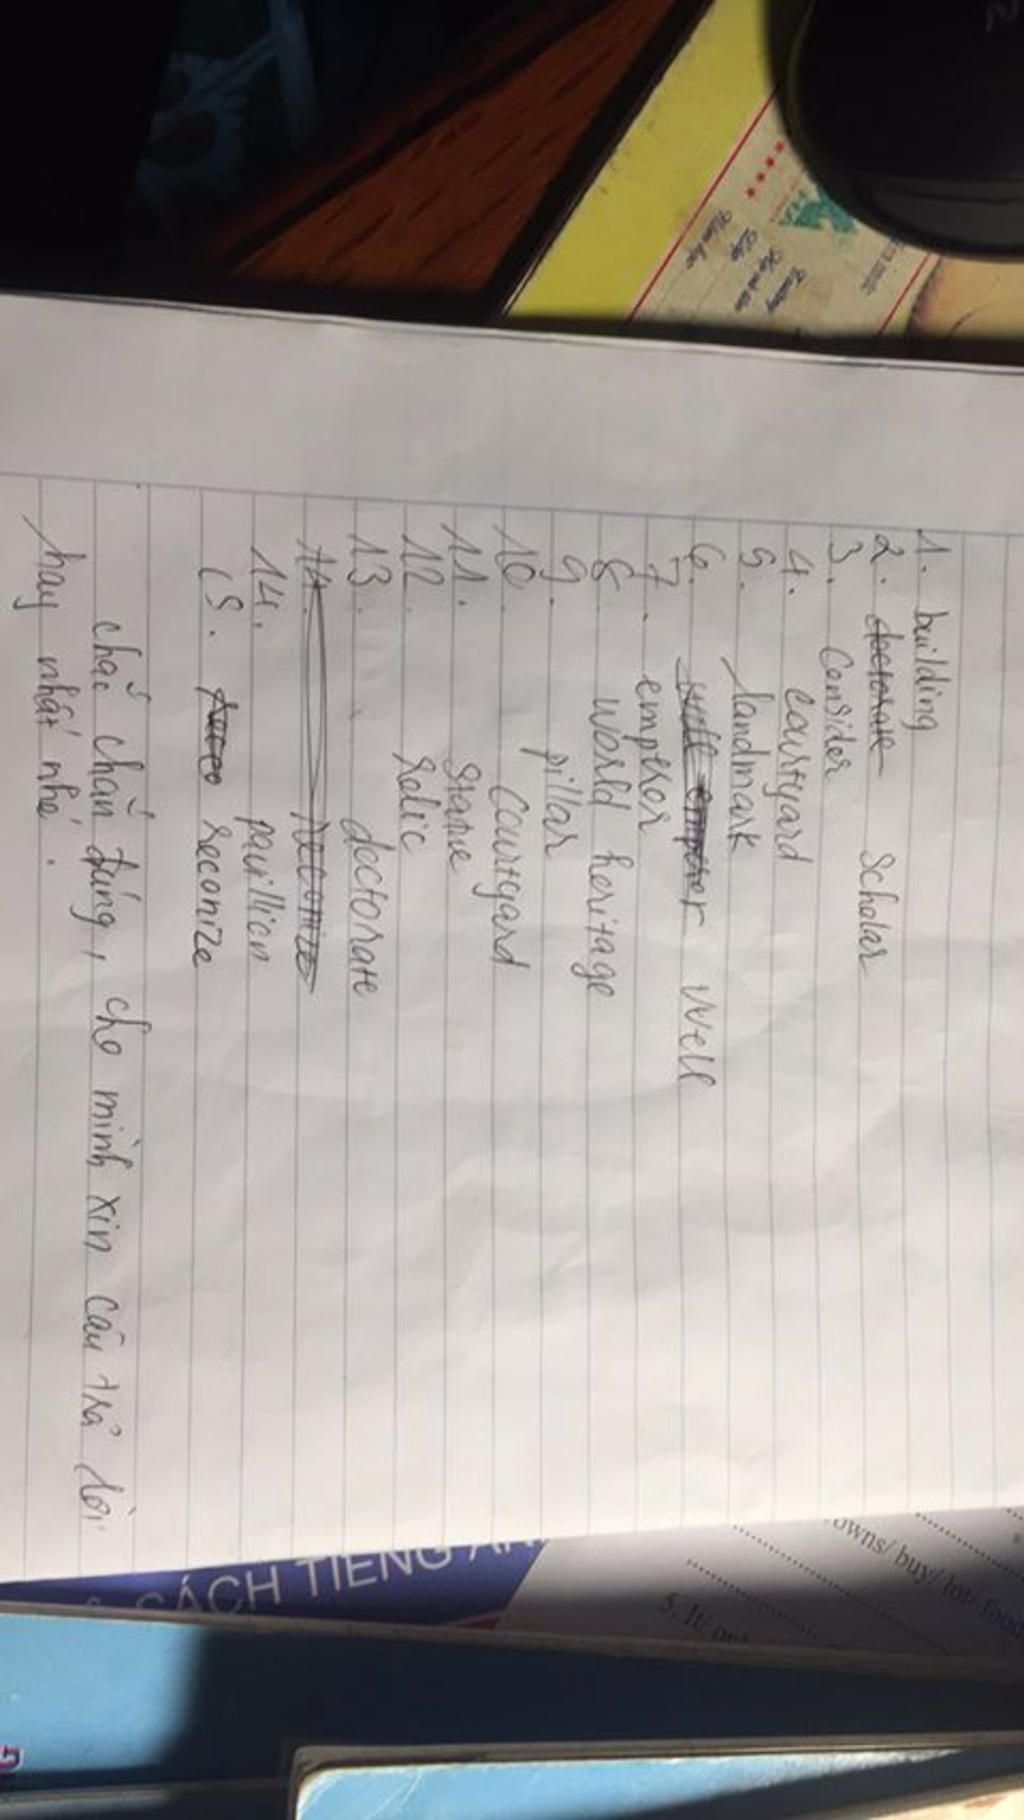 1. building
2. doctorate Scholar
3. Consider
4. courtyard
5. landmark
6. well emperor Well
7. emperor
8. world heritage
9. pillar
10. Courtyard
11. Statue
12. Relic
13. doctorate
14. Reconize
14. pavillion
15. Reconize
chắc chắn đúng, cho mình xin câu trả lời
hay nhất nhé.
SÁCH TIẾNG AN
owns/ buy/ lot/ food
5. It/